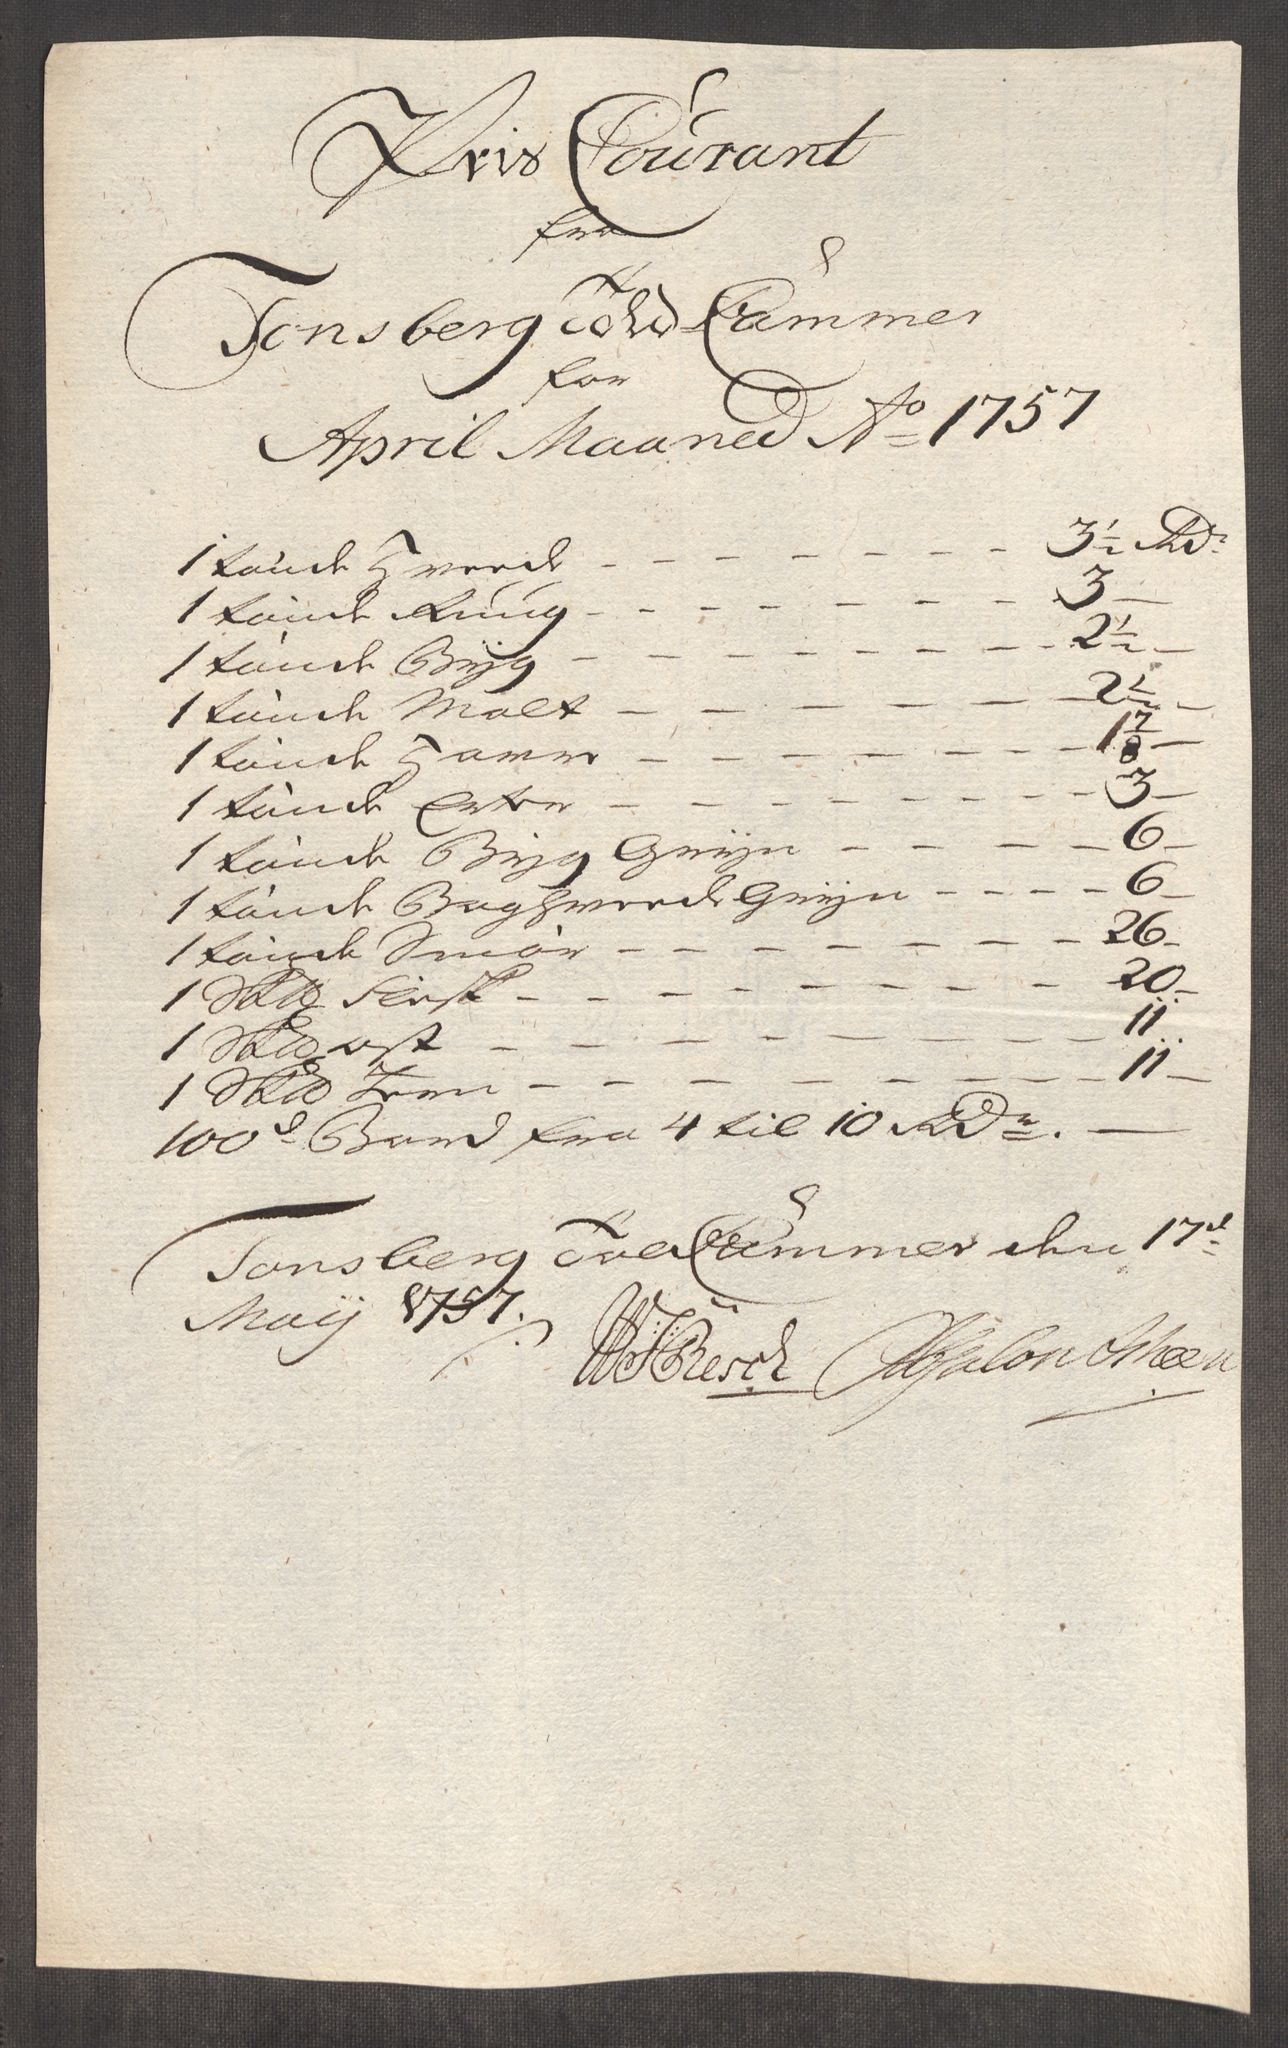 Pris Courant
fra
Tønsberg Told Cammer
for
April Maaned Ao 1757
1 tønde Hvede - - - 3½ Rdr
1 tønde Rug - - - 3 -
1 tønde Byg - - - 2½ -
1 tønde Malt - - - 2½ -
1 tønde Haver - - - 1 7/8 -
1 tønde Erter - - - 3 -
1 tønde Byg Gryn - - - 6 -
1 tønde Boghvede Gryn - - - 6 -
1 tønde Smør - - - 26 -
1 Skd flesk - - - 20 -
1 Skd ost - - - 11 -
1 Skd Jern - - - 11 -
100d Bord fra 4 til 10 Rdr. -
Tønsberg Told Cammer den 17d
Maij 1757.
Resch Absalon